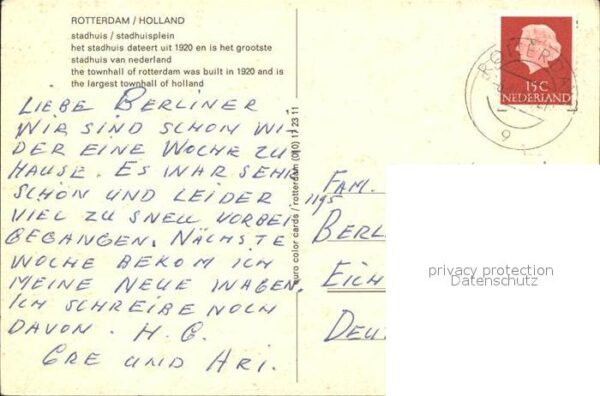 ROTTERDAM / HOLLAND
stadhuis / stadhuisplein
het stadhuis dateert uit 1920 en is het grootste
stadhuis van nederland
the townhall of rotterdam was built in 1920 and is
the largest townhall of holland
LIEBE BERLINER
WIR SIND SCHON WI-
DER EINE WOCHE ZU
HAUSE. ES WAR SEHR
SCHÖN UND LEIDER
VIEL ZU SNELL VORBEI
GEGANGEN. NÄCHSTE
WOCHE BEKOM ICH
MEINE NEUE WAGEN.
ICH SCHREIBE NOCH
DAVON. H. G.
GRE UND ARI.
euro color cards / rotterdam (010) 17 23 11
15C
NEDERLAND
ROTTERDAM
9
FAM.
1195
BERL
EICH
DEU
privacy protection
Datenschutz